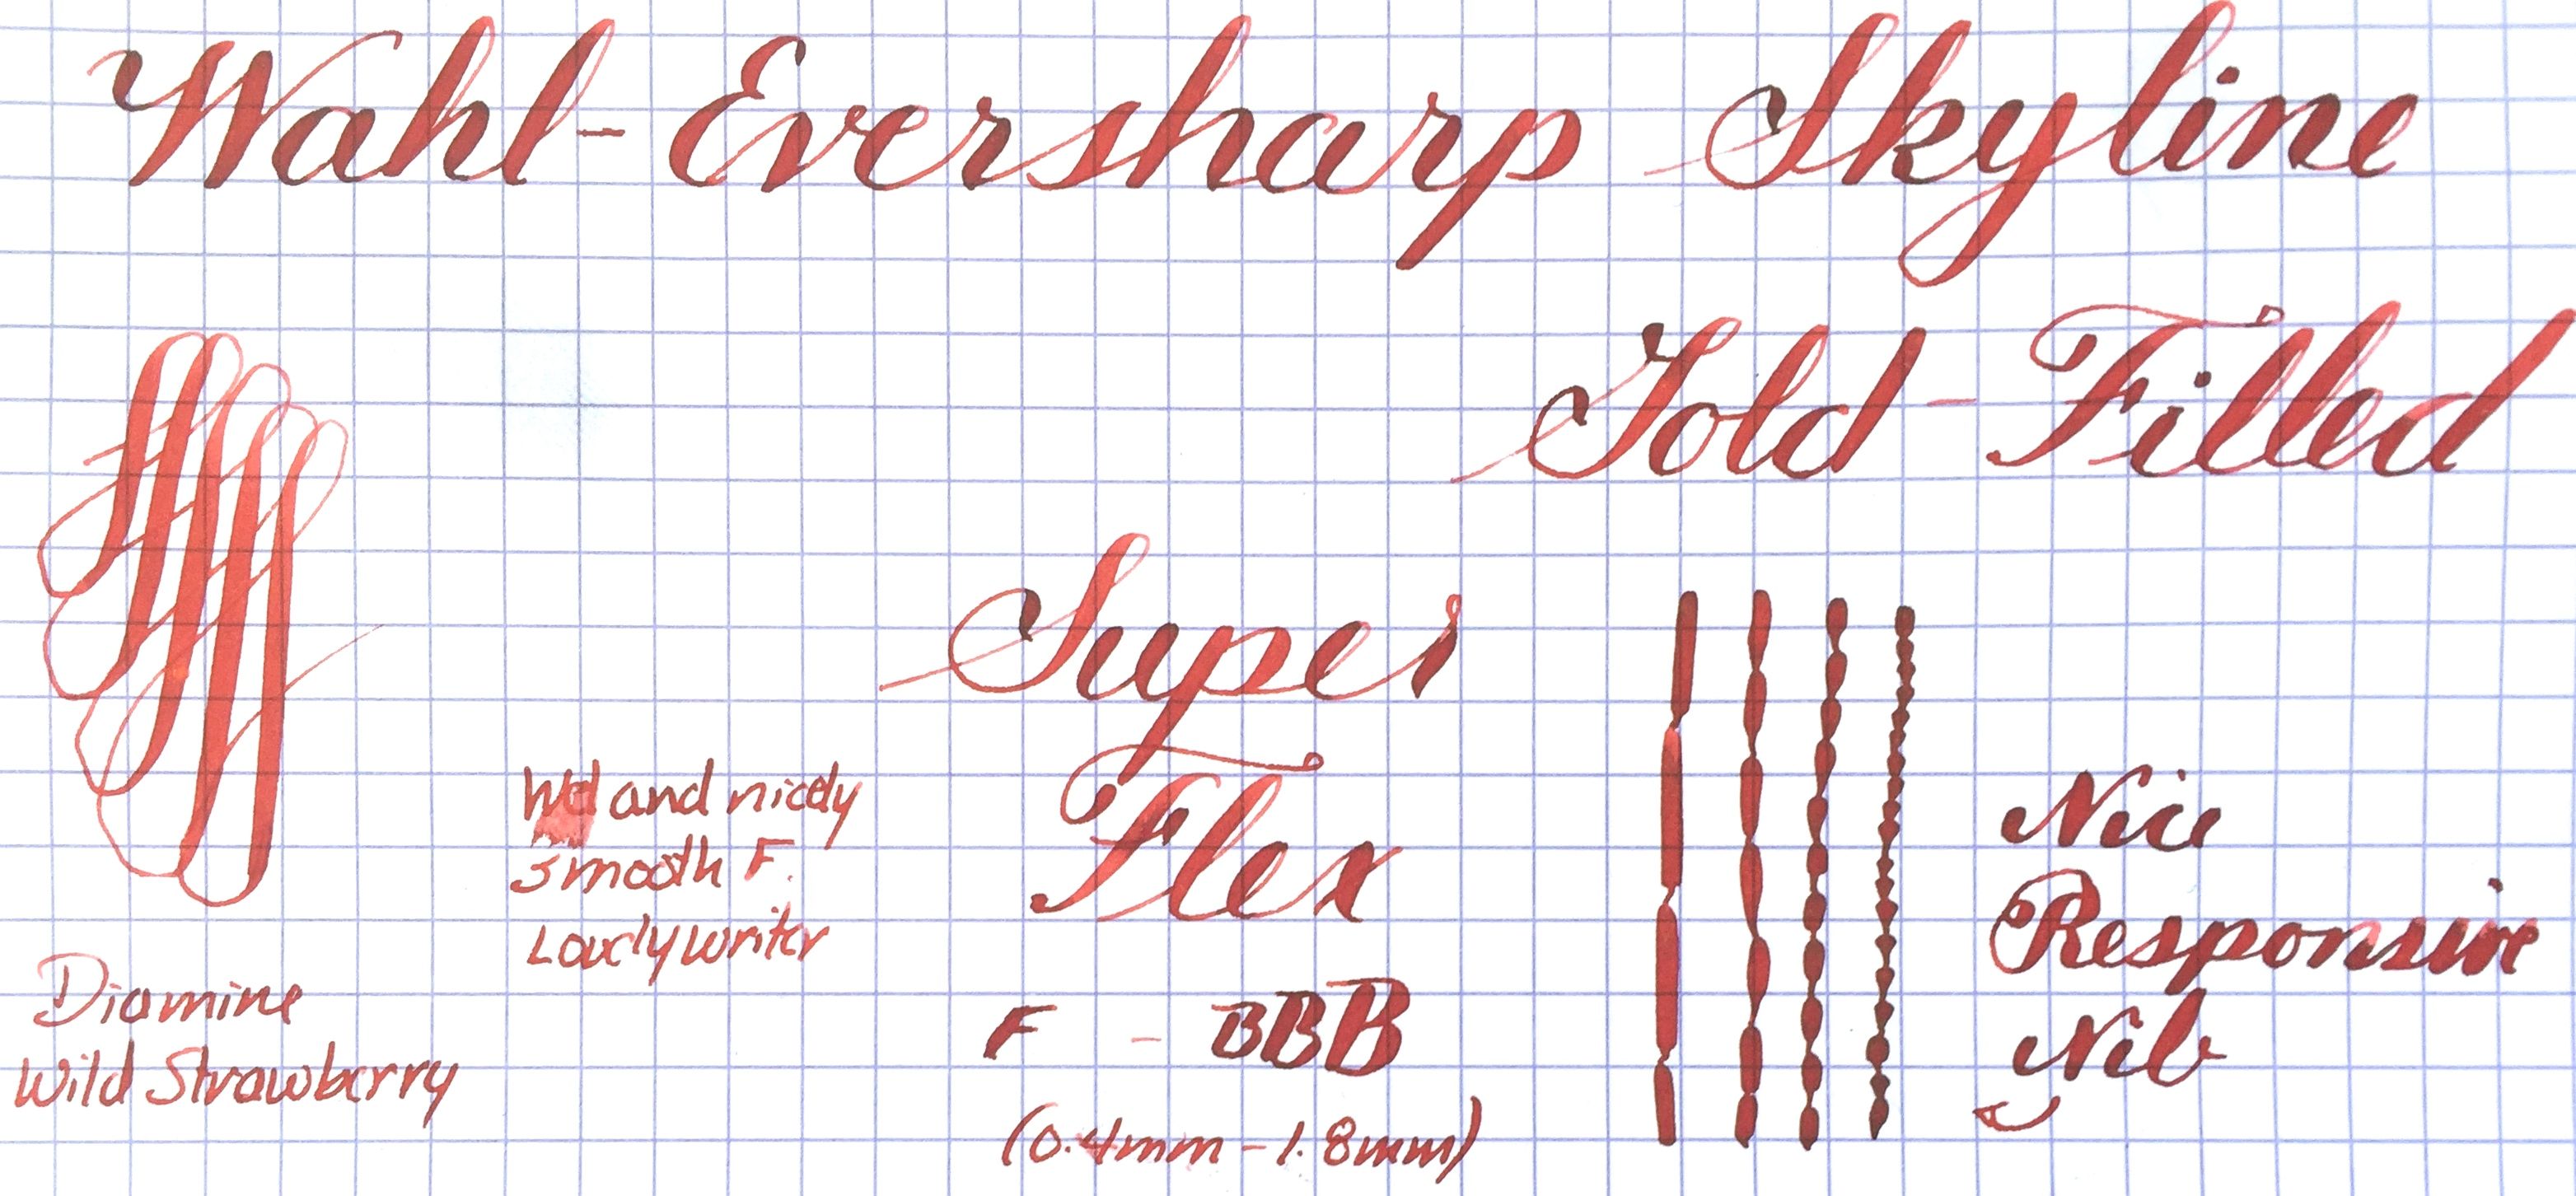 Wahl-Eversharp Skyline
Gold-Filled
Super
Flex
F - BBB
(0.4mm - 1.8mm)
Wet and nicely
smooth F.
Lovely writer
Diamine
Wild Strawberry
Nice
Responsive
Nib